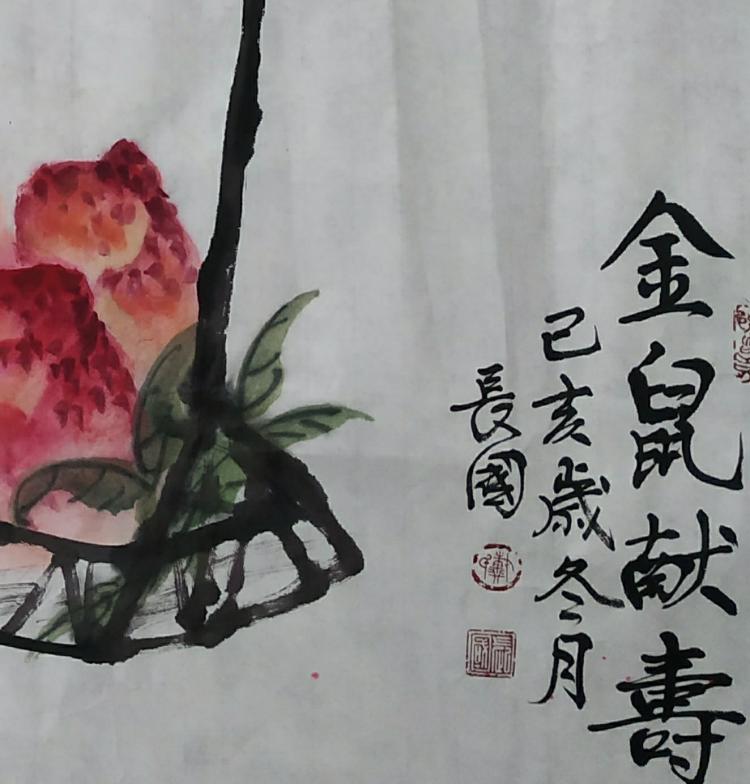 金鼠献壽
己亥歲冬月
長國